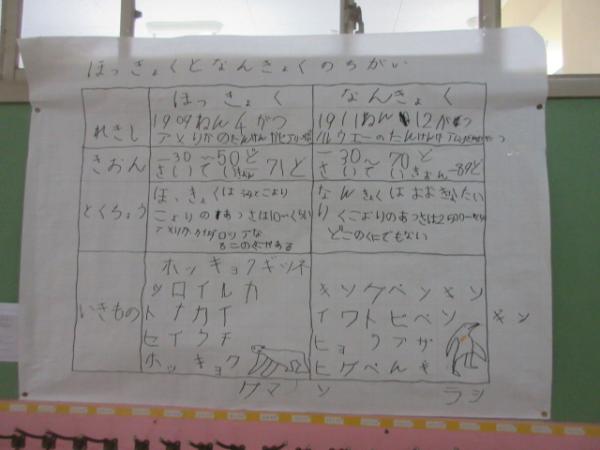 ほっきょくとなんきょくのちがい
ほっきょく
なんきょく
れきし
1909ねん4がつ
アメリカのたんけんか
1911ねん12がつ
ノルウエーのたんけんか
きおん
-30~-50ど
さいてい 71ど
-30~70ど
さいてい -89ど
とくちょう
ほっきょくは
こおりのあつさは10
アメリカ カナダ ロシアな
どこのくにがある
なんきょくは
り くこおりのあつさは
どこのくにでもない
いきもの
ホッキョクギツネ
シロイルカ
トナカイ
セイウチ
ホッキョク
クマ
キングペンギン
イワトビペンギン
ヒョウアザ
ラシ
ヒゲペンギ
ン